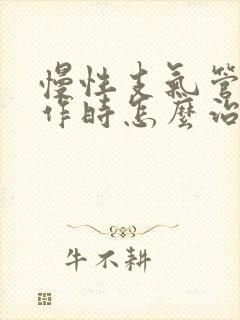 慢性支氣管
作時怎麼治
牛不耕